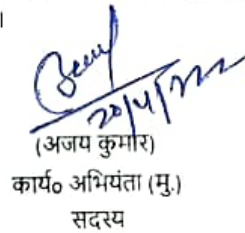 ।
20/4/22
(अजय कुमार)
कार्य० अभियंता (मु.)
सदस्य